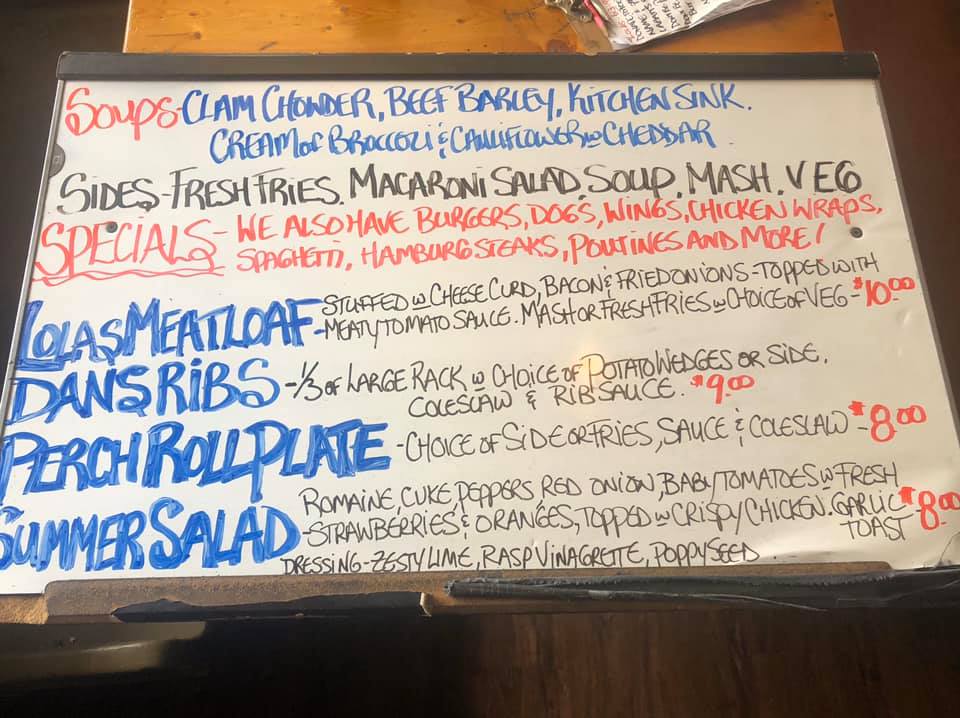 SOUPS - CLAM CHOWDER, BEEF BARLEY, KITCHEN SINK.
CREAM OF BROCCOLI & CAULIFLOWER W CHEDDAR
SIDES - FRESH FRIES. MACARONI SALAD. SOUP. MASH. VEG
SPECIALS - WE ALSO HAVE BURGERS, DOGS, WINGS, CHICKEN WRAPS,
SPAGHETTI, HAMBURG STEAKS, POUTINES AND MORE!
LOLAS MEATLOAF - STUFFED W CHEESE CURD, BACON & FRIED ONIONS - TOPPED WITH
MEATY TOMATO SAUCE. MASH OR FRESH FRIES W CHOICE OF VEG - $10.00
DANS RIBS - 1/3 OF LARGE RACK W CHOICE OF POTATO WEDGES OR SIDE,
COLESLAW & RIB SAUCE. $9.00
PERCH ROLL PLATE - CHOICE OF SIDE OR FRIES, SAUCE & COLESLAW - $8.00
SUMMER SALAD - ROMAINE, CUKE, PEPPERS RED ONION, BABY TOMATOES W FRESH
STRAWBERRIES & ORANGES, TOPPED W CRISPY CHICKEN. GARLIC TOAST $8.00
DRESSING - ZESTY LIME, RASP VINAGRETTE, POPPYSEED